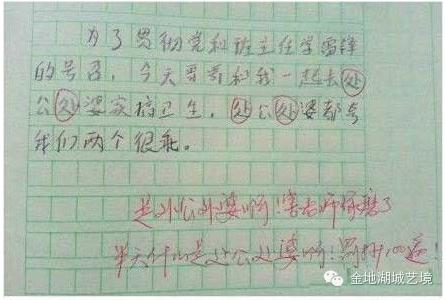 为了贯彻党和班主任学雷锋
的号召，今天哥哥和我一起去处
公处婆家搞卫生，处公处婆都夸
我们两个很乖。
是外公外婆啊！害老师琢磨了
半天什么是处公处婆啊！罚抄100遍！
金地湖城艺境